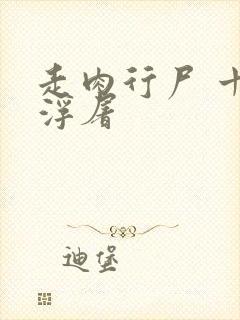 走肉行尸 十
浮屠
迪堡